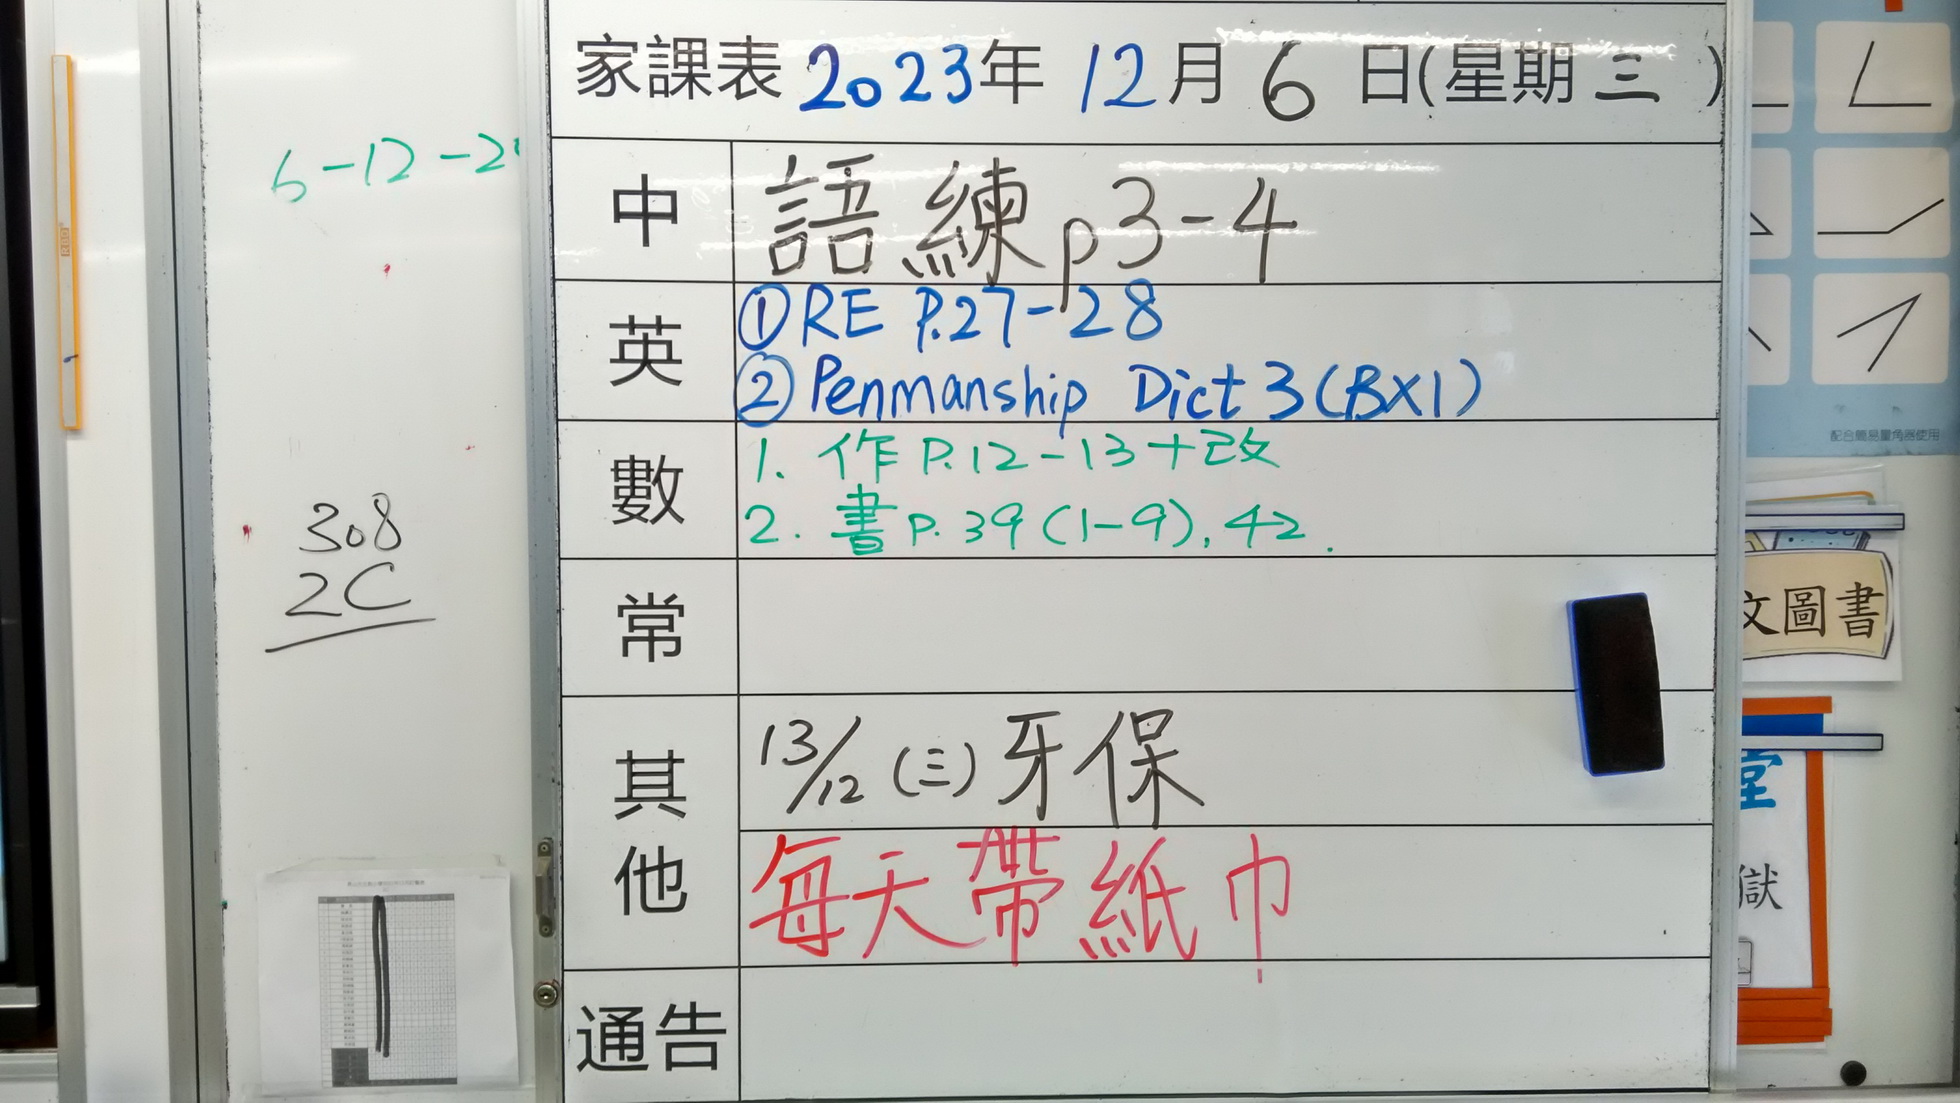 家課表 2023年 12月 6 日(星期 三 )
6-12-2
中 語練p3-4
英 ①RE P.27-28
②Penmanship Dict 3(BX1)
數 1. 作 P.12-13+改
2. 書 P.39(1-9), 42.
308
2C
常
其他 13/12 (三)牙保
每天帶紙巾
通告
配合簡易量角器使用
文圖書
堂
獄